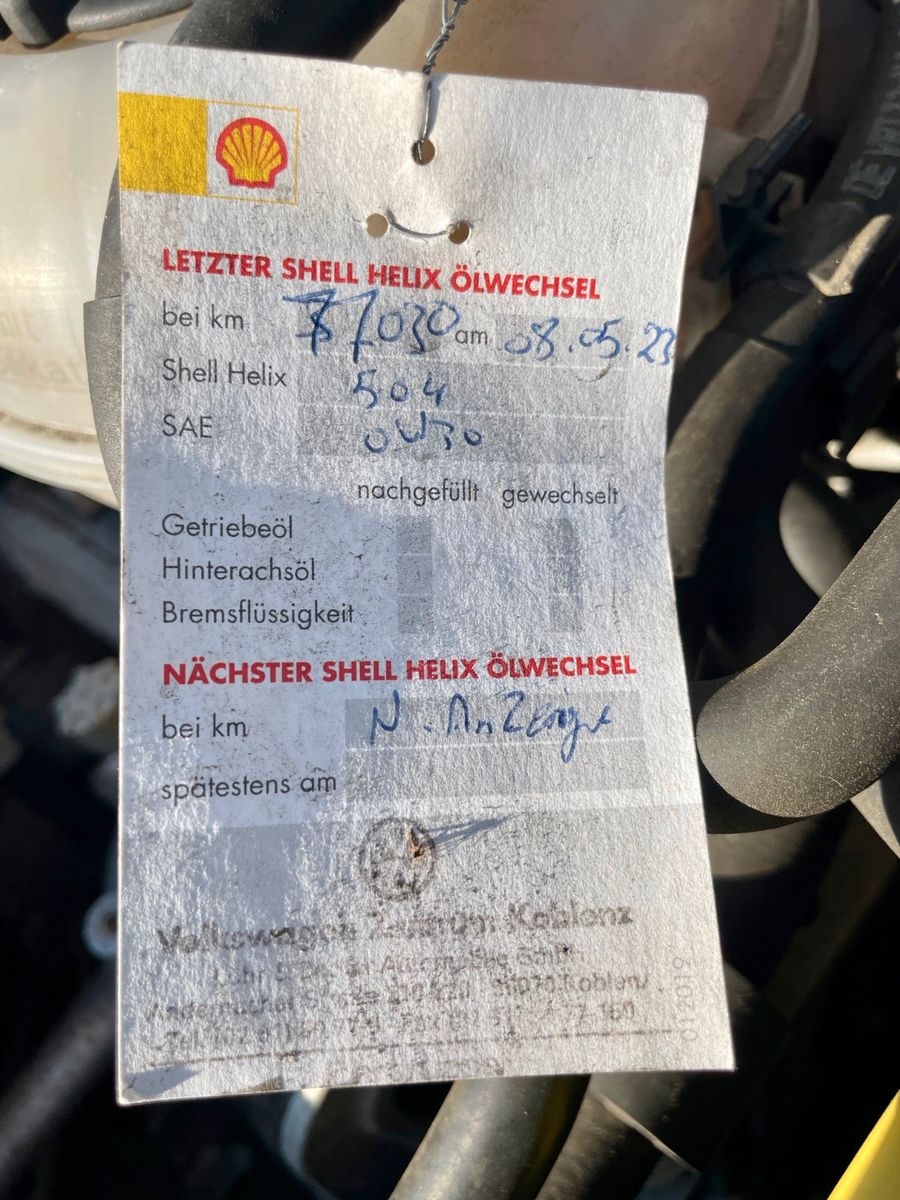 LETZTER SHELL HELIX ÖLWECHSEL
bei km 77030 am 08.05.23
Shell Helix 504
SAE 0W30
nachgefüllt gewechselt
Getriebeöl
Hinterachsöl
Bremsflüssigkeit
NÄCHSTER SHELL HELIX ÖLWECHSEL
bei km N. Anzeige
spätestens am
Volkswagen Zentrum Koblenz
Automobile GmbH
56070 Koblenz
012019